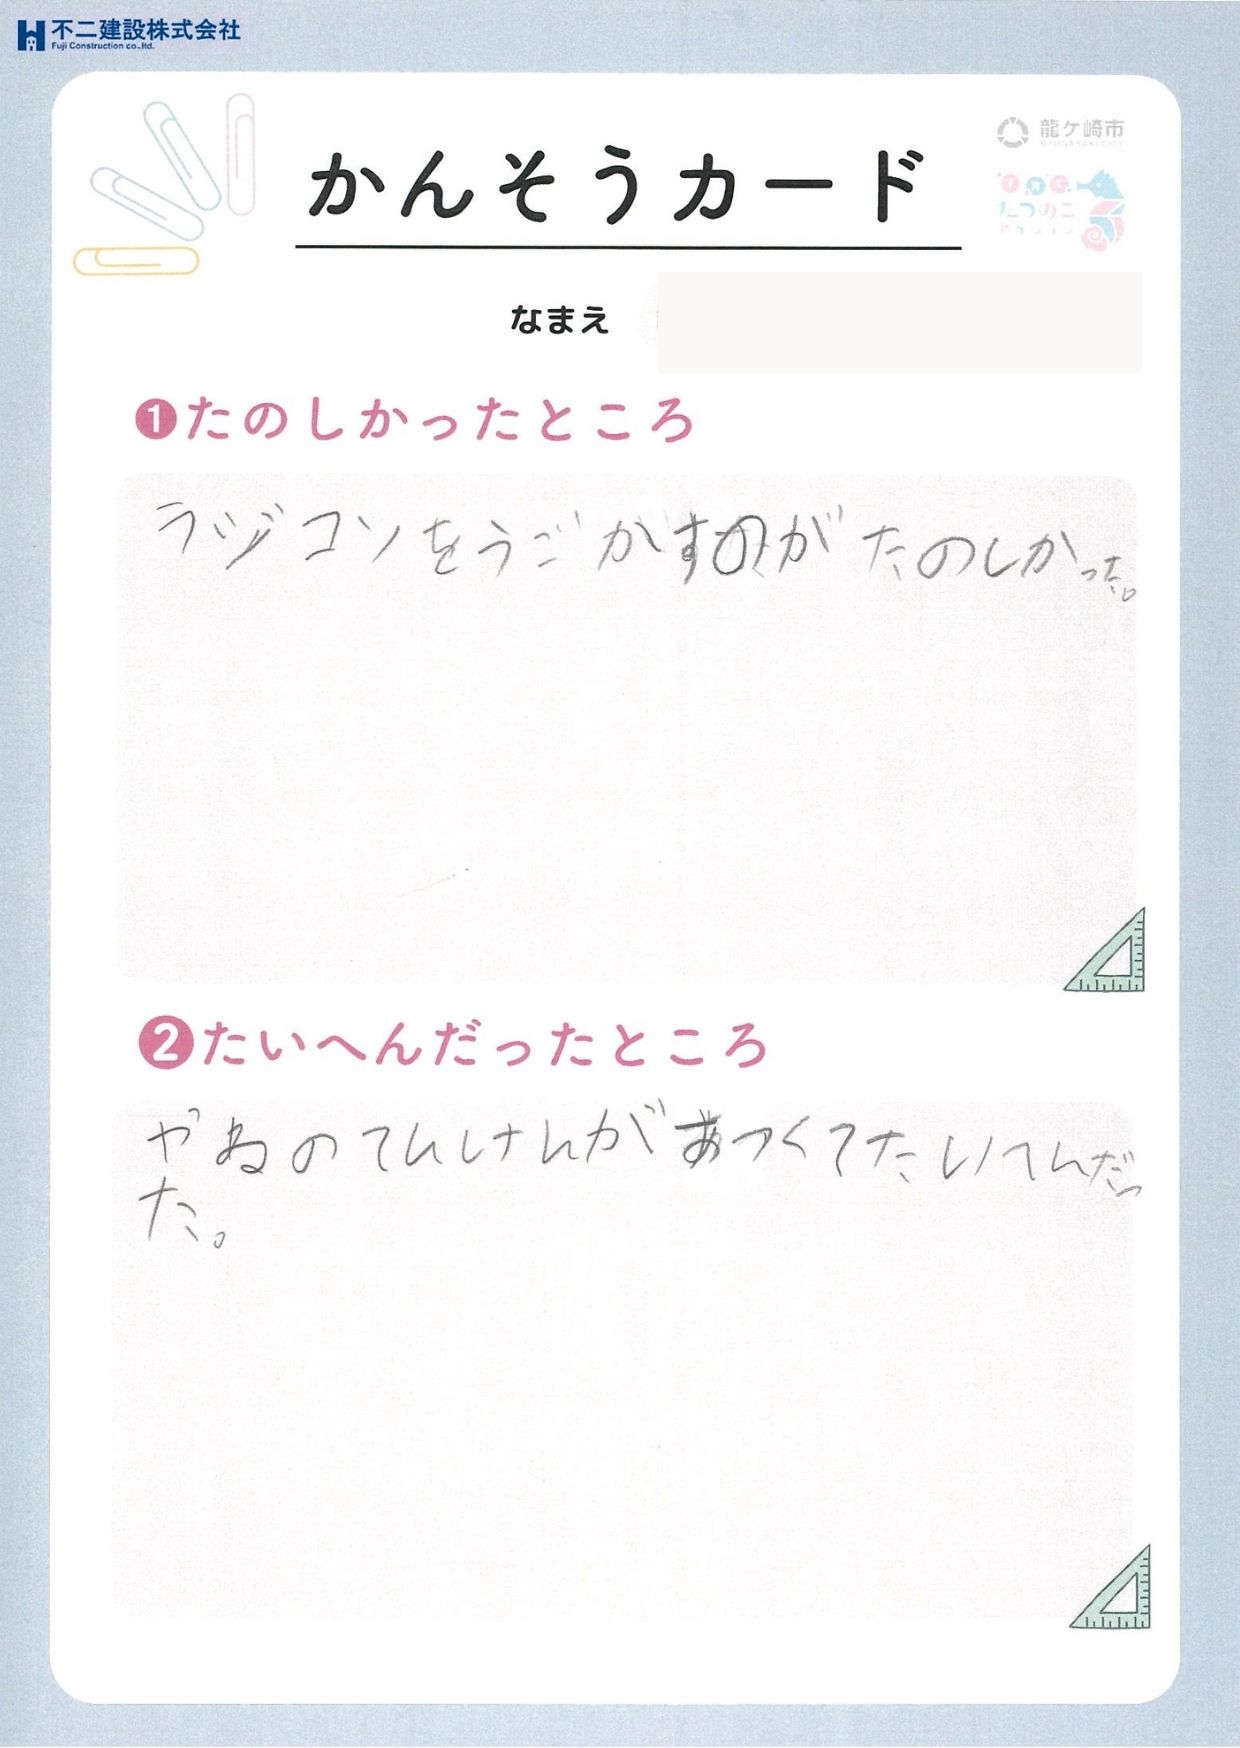 不二建設株式会社
Fuji Construction co.,ltd.
龍ケ崎市
RYUGASAKI CITY
かんそうカード
たつのこ
アクション
なまえ
❶たのしかったところ
ラジコンをうごかすのがたのしかった。
❷たいへんだったところ
やねのてんけんがあつくてたいへんだっ
た。